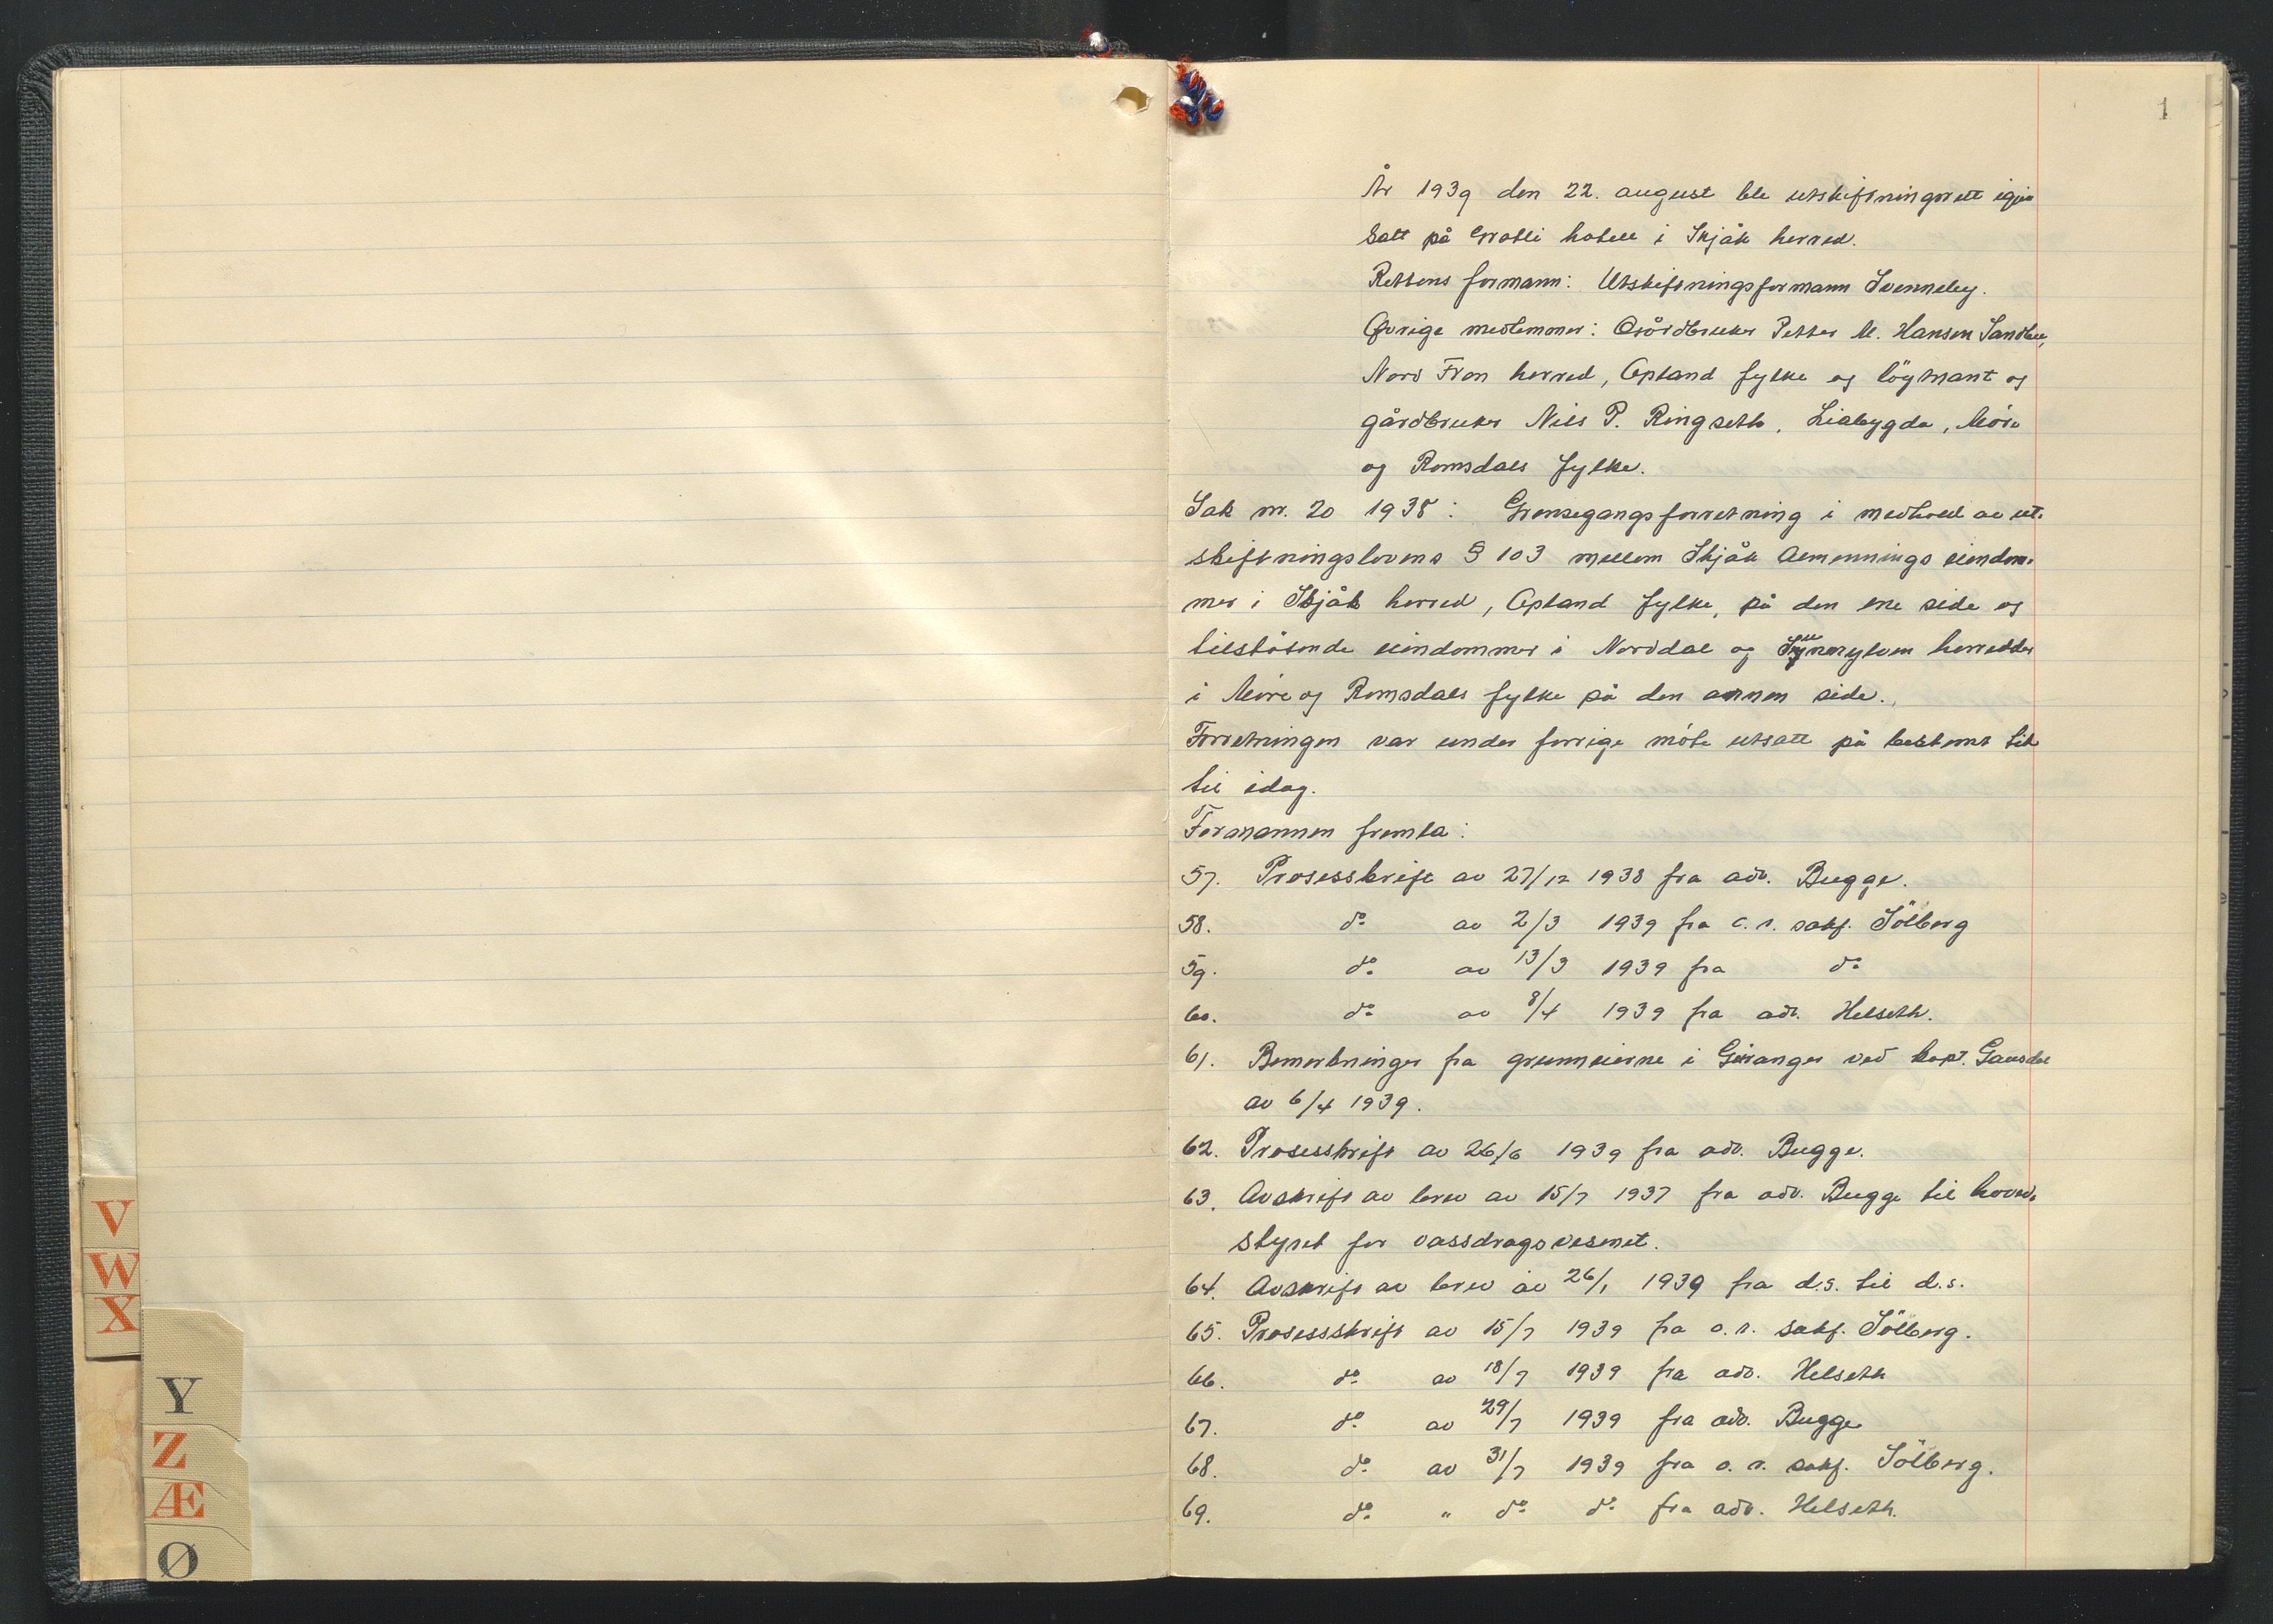 1
År 1939 den 22. august ble utskiftningsrett igjen
satt på Grotli hotell i Skjåk herred.
Rettens formann: Utskiftningsformann Svenneby.
Øvrige medlemmer: Gårdbruker Petter M. Hansen Sandbu,
Nord Fron herred, Opland fylke og löytnant og
gårdbruker Nils P. Ringseth, Liabygda, Möre
og Romsdals fylke.
Sak nr. 20 1938: Grensegangsforretning i medhold av ut-
skiftningslovens § 103 mellem Skjåk Almennings eiendom-
mer i Skjåk herred, Opland fylke, på den ene side og
tilstötende eiendommer i Norddal og Sunnylven herreder
i Möre og Romsdals fylke på den annen side.
Forretningen var under forrige möte utsatt på bestemt tid
til idag.
Formannen fremla:
57. Prosesskrift av 27/12 1938 fra adv. Bugge.
58. do av 2/3 1939 fra o.r. sakf. Sölberg
59. do av 13/3 1939 fra do
60. do av 8/4 1939 fra adv. Helseth.
61. Bemerkninger fra grunneierne i Geiranger ved kapt. Gausdal
av 6/4 1939.
62. Prosesskrift av 26/6 1939 fra adv. Bugge.
63. Avskrift av brev av 15/7 1937 fra adv. Bugge til hoved-
styret for vassdragsvesenet.
64. Avskrift av brev av 26/1 1939 fra d.s. til d.s.
65. Prosessskrift av 15/7 1939 fra o.r. sakf. Sölberg.
66. do av 18/7 1939 fra adv. Helseth
67. do av 29/7 1939 fra adv. Bugge
68. do av 31/7 1939 fra o.r. sakf. Sölberg.
69. do " do do fra adv. Helseth.
V
W
X
Y
Z
Æ
Ø